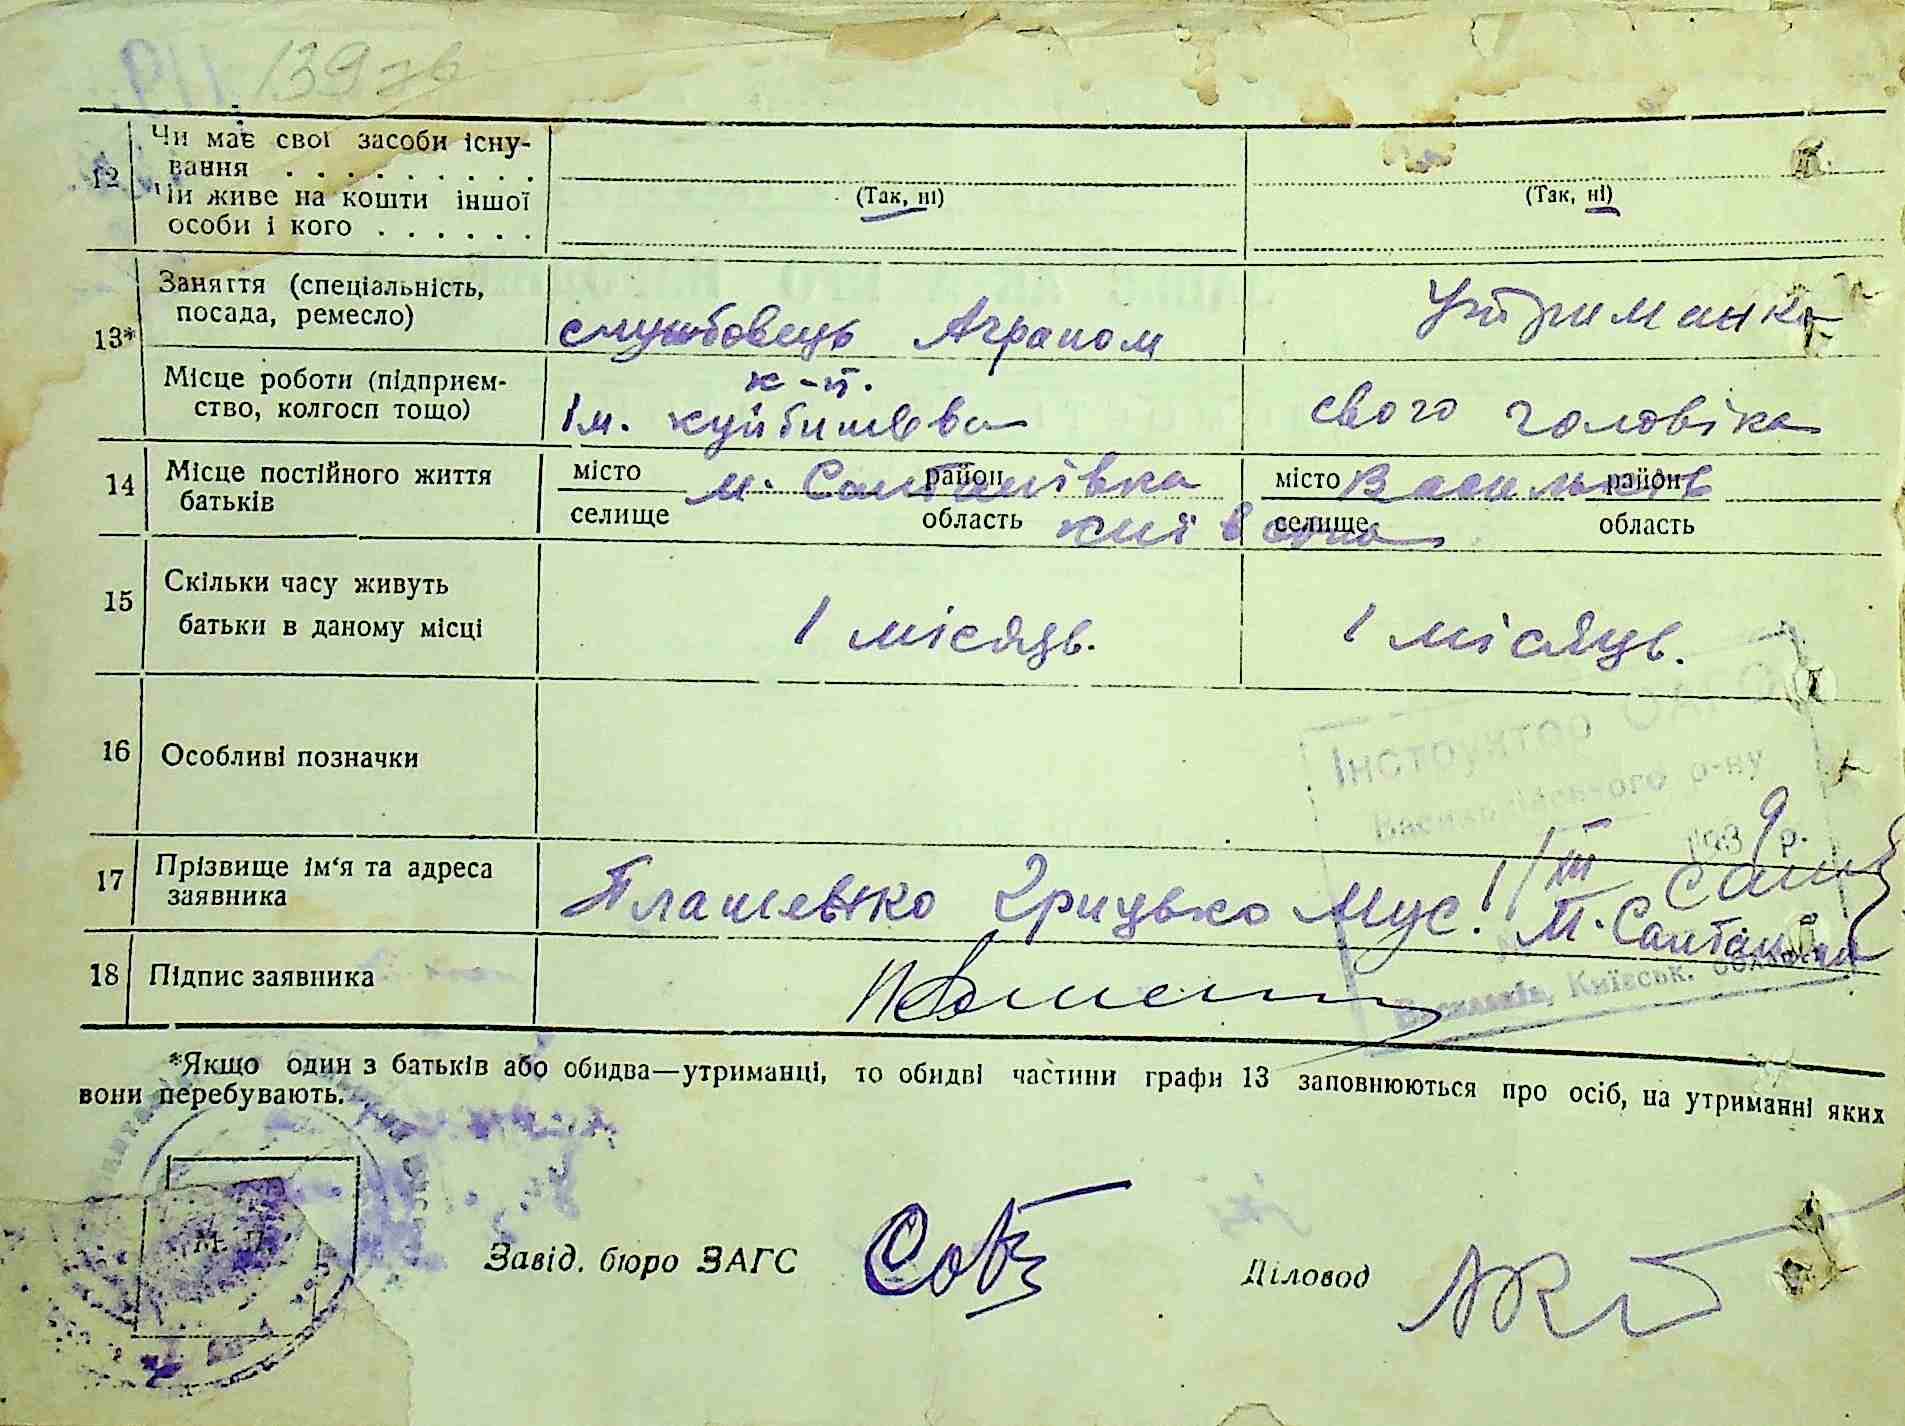 139 зв
12 Чи має свої засоби існу-
вання . . . . . . . . .
Чи живе на кошти іншої
особи і кого . . . . . .
(Так, ні) (Так, ні)
13* Заняття (спеціальність,
посада, ремесло)
службовець Аграном Утриманка
Місце роботи (підприєм-
ство, колгосп тощо)
к-п.
Ім. куйбишева свого чоловіка
14 Місце постійного життя
батьків
місто м. Салтанівка район місто Васильків район
селище область київська селище область
15 Скільки часу живуть
батьки в даному місці
1 місяць. 1 місяць.
16 Особливі позначки
Інструктор ОАГС
Васильківського р-ну
193 9 р.
17 Прізвище ім'я та адреса
заявника
Плашенко Грицько Мус. м. Салтанівка
18 Підпис заявника
Васильків, Київськ. області
*Якщо один з батьків або обидва—утриманці, то обидві частини графи 13 заповнюються про осіб, на утриманні яких
вони перебувають.
М. П.
Завід. бюро ЗАГС Діловод